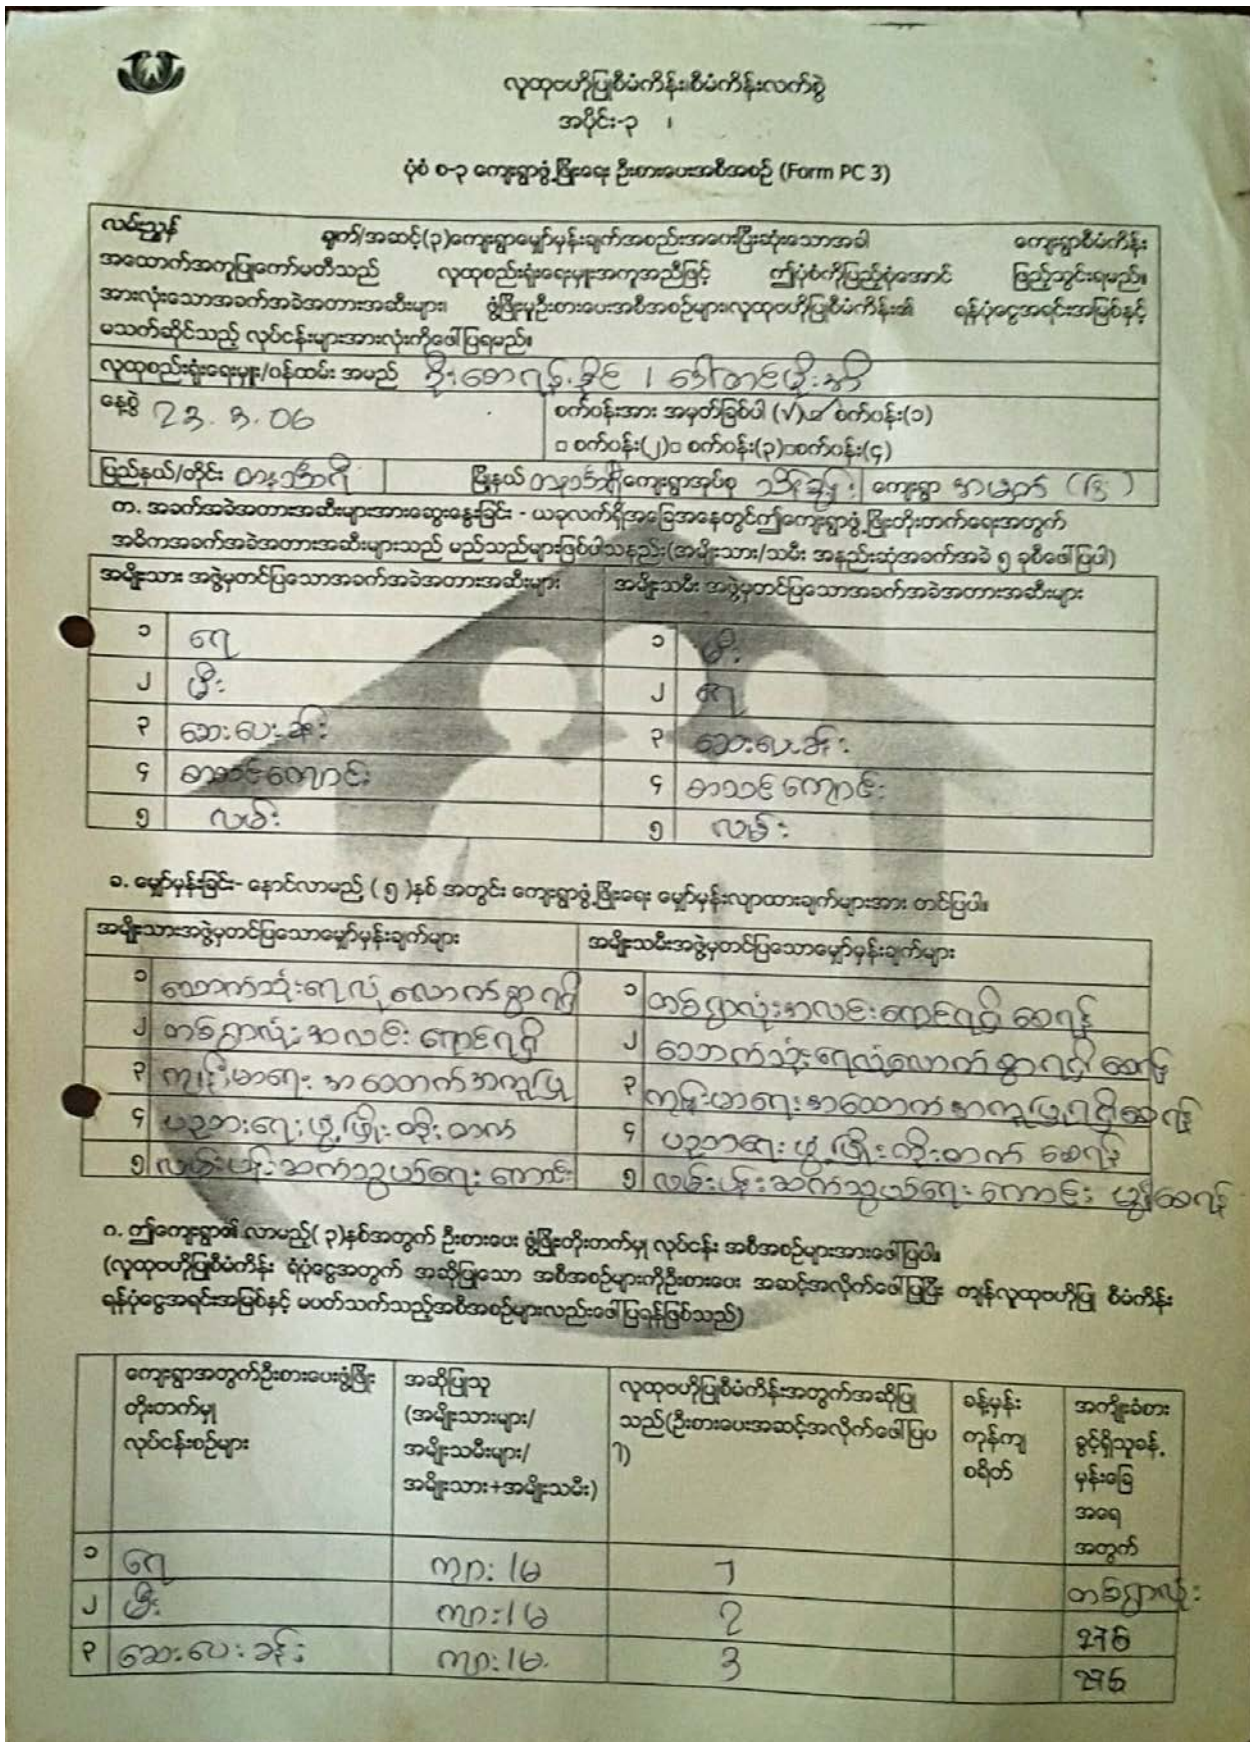 လူထုဗဟိုပြုစီမံကိန်း၊စီမံကိန်းလက်စွဲ
အပိုင်း-၃ ၊
ပုံစံ စ-၃ ကျေးရွာဖွံ့ဖြိုးရေး ဦးစားပေးအစီအစဉ် (Form PC 3)
လမ်းညွှန် ချက်/အဆင့်(၃)ကျေးရွာမျှော်မှန်းချက်အစည်းအဝေးပြီးဆုံးသောအခါ ကျေးရွာစီမံကိန်း
အထောက်အကူပြုကော်မတီသည် လူထုစည်းရုံးရေးမှူးအကူအညီဖြင့် ဤပုံစံကိုပြည့်စုံအောင် ဖြည့်သွင်းရမည်။
အားလုံးသောအခက်အခဲအတားအဆီးများ၊ ဖွံ့ဖြိုးမှုဦးစားပေးအစီအစဉ်များ၊လူထုဗဟိုပြုစီမံကိန်း၏ ရန်ပုံငွေအရင်းအမြစ်နှင့်
မသက်ဆိုင်သည့် လုပ်ငန်းများအားလုံးကိုဖေါ်ပြရမည်။
လူထုစည်းရုံးရေးမှူး/ဝန်ထမ်း အမည်
နေ့စွဲ 23.3.06 စက်ဝန်းအား အမှတ်ခြစ်ပါ (√) စက်ဝန်း(၁)
□ စက်ဝန်း(၂)□ စက်ဝန်း(၃)□စက်ဝန်း(၄)
ပြည်နယ်/တိုင်း တနင်္သာရီ မြို့နယ် တနင်္သာရီ ကျေးရွာအုပ်စု ကျေးရွာ
က. အခက်အခဲအတားအဆီးများအားဆွေးနွေးခြင်း - ယခုလက်ရှိအခြေအနေတွင်ဤကျေးရွာဖွံ့ဖြိုးတိုးတက်ရေးအတွက်
အဓိကအခက်အခဲအတားအဆီးများသည် မည်သည်များဖြစ်ပါသနည်း(အမျိုးသား/သမီး အနည်းဆုံးအခက်အခဲ ၅ ခုစီဖေါ်ပြပါ)
အမျိုးသား အဖွဲ့မှတင်ပြသောအခက်အခဲအတားအဆီးများ အမျိုးသမီး အဖွဲ့မှတင်ပြသောအခက်အခဲအတားအဆီးများ
၁ ရေ ၁ မီး
၂ မီး ၂ ရေ
၃ ဆေးပေးခန်း ၃ ဆေးပေးခန်း
၄ စာသင်ကျောင်း ၄ စာသင်ကျောင်း
၅ လမ်း ၅ လမ်း
ခ. မျှော်မှန်းခြင်း- နောင်လာမည့် ( ၅ )နှစ် အတွင်း ကျေးရွာဖွံ့ဖြိုးရေး မျှော်မှန်းလျာထားချက်များအား တင်ပြပါ။
အမျိုးသားအဖွဲ့မှတင်ပြသောမျှော်မှန်းချက်များ အမျိုးသမီးအဖွဲ့မှတင်ပြသောမျှော်မှန်းချက်များ
၁ သောက်သုံးရေလုံလောက်စွာရရှိ ၁ တစ်ရွာလုံးအလင်းရောင်ရရှိစေရန်
၂ တစ်ရွာလုံးအလင်းရောင်ရရှိ ၂ သောက်သုံးရေလုံလောက်စွာရရှိစေရန်
၃ ကျန်းမာရေးအထောက်အကူပြု ၃ ကျန်းမာရေးအထောက်အကူပြုရရှိစေရန်
၄ ပညာရေးဖွံ့ဖြိုးတိုးတက် ၄ ပညာရေးဖွံ့ဖြိုးတိုးတက်စေရန်
၅ လမ်းပန်းဆက်သွယ်ရေးကောင်း ၅ လမ်းပန်းဆက်သွယ်ရေးကောင်းမွန်စေရန်
ဂ. ဤကျေးရွာ၏ လာမည့်( ၃)နှစ်အတွက် ဦးစားပေး ဖွံ့ဖြိုးတိုးတက်မှု လုပ်ငန်း အစီအစဉ်များအားဖေါ်ပြပါ။
(လူထုဗဟိုပြုစီမံကိန်း ရံပုံငွေအတွက် အဆိုပြုသော အစီအစဉ်များကိုဦးစားပေး အဆင့်အလိုက်ဖေါ်ပြပြီး ကျန်လူထုဗဟိုပြု စီမံကိန်း
ရန်ပုံငွေအရင်းအမြစ်နှင့် မပတ်သက်သည့်အစီအစဉ်များလည်းဖေါ်ပြရန်ဖြစ်သည်)
ကျေးရွာအတွက်ဦးစားပေးဖွံ့ဖြိုး
တိုးတက်မှု
လုပ်ငန်းစဉ်များ
အဆိုပြုသူ
(အမျိုးသားများ/
အမျိုးသမီးများ/
အမျိုးသား+အမျိုးသမီး)
လူထုဗဟိုပြုစီမံကိန်းအတွက်အဆိုပြု
သည်(ဦးစားပေးအဆင့်အလိုက်ဖေါ်ပြပ
ါ)
ခန့်မှန်း
ကုန်ကျ
စရိတ်
အကျိုးခံစား
ခွင့်ရှိသူခန့်
မှန်းခြေ
အရေ
အတွက်
၁ ရေ ကျား/မ 1 တစ်ရွာလုံး
၂ မီး ကျား/မ 2
၃ ဆေးပေးခန်း ကျား/မ 3